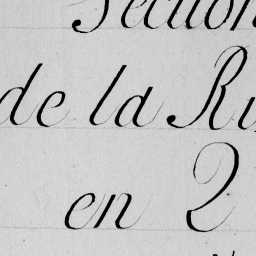 Section
de la Ri
en 2